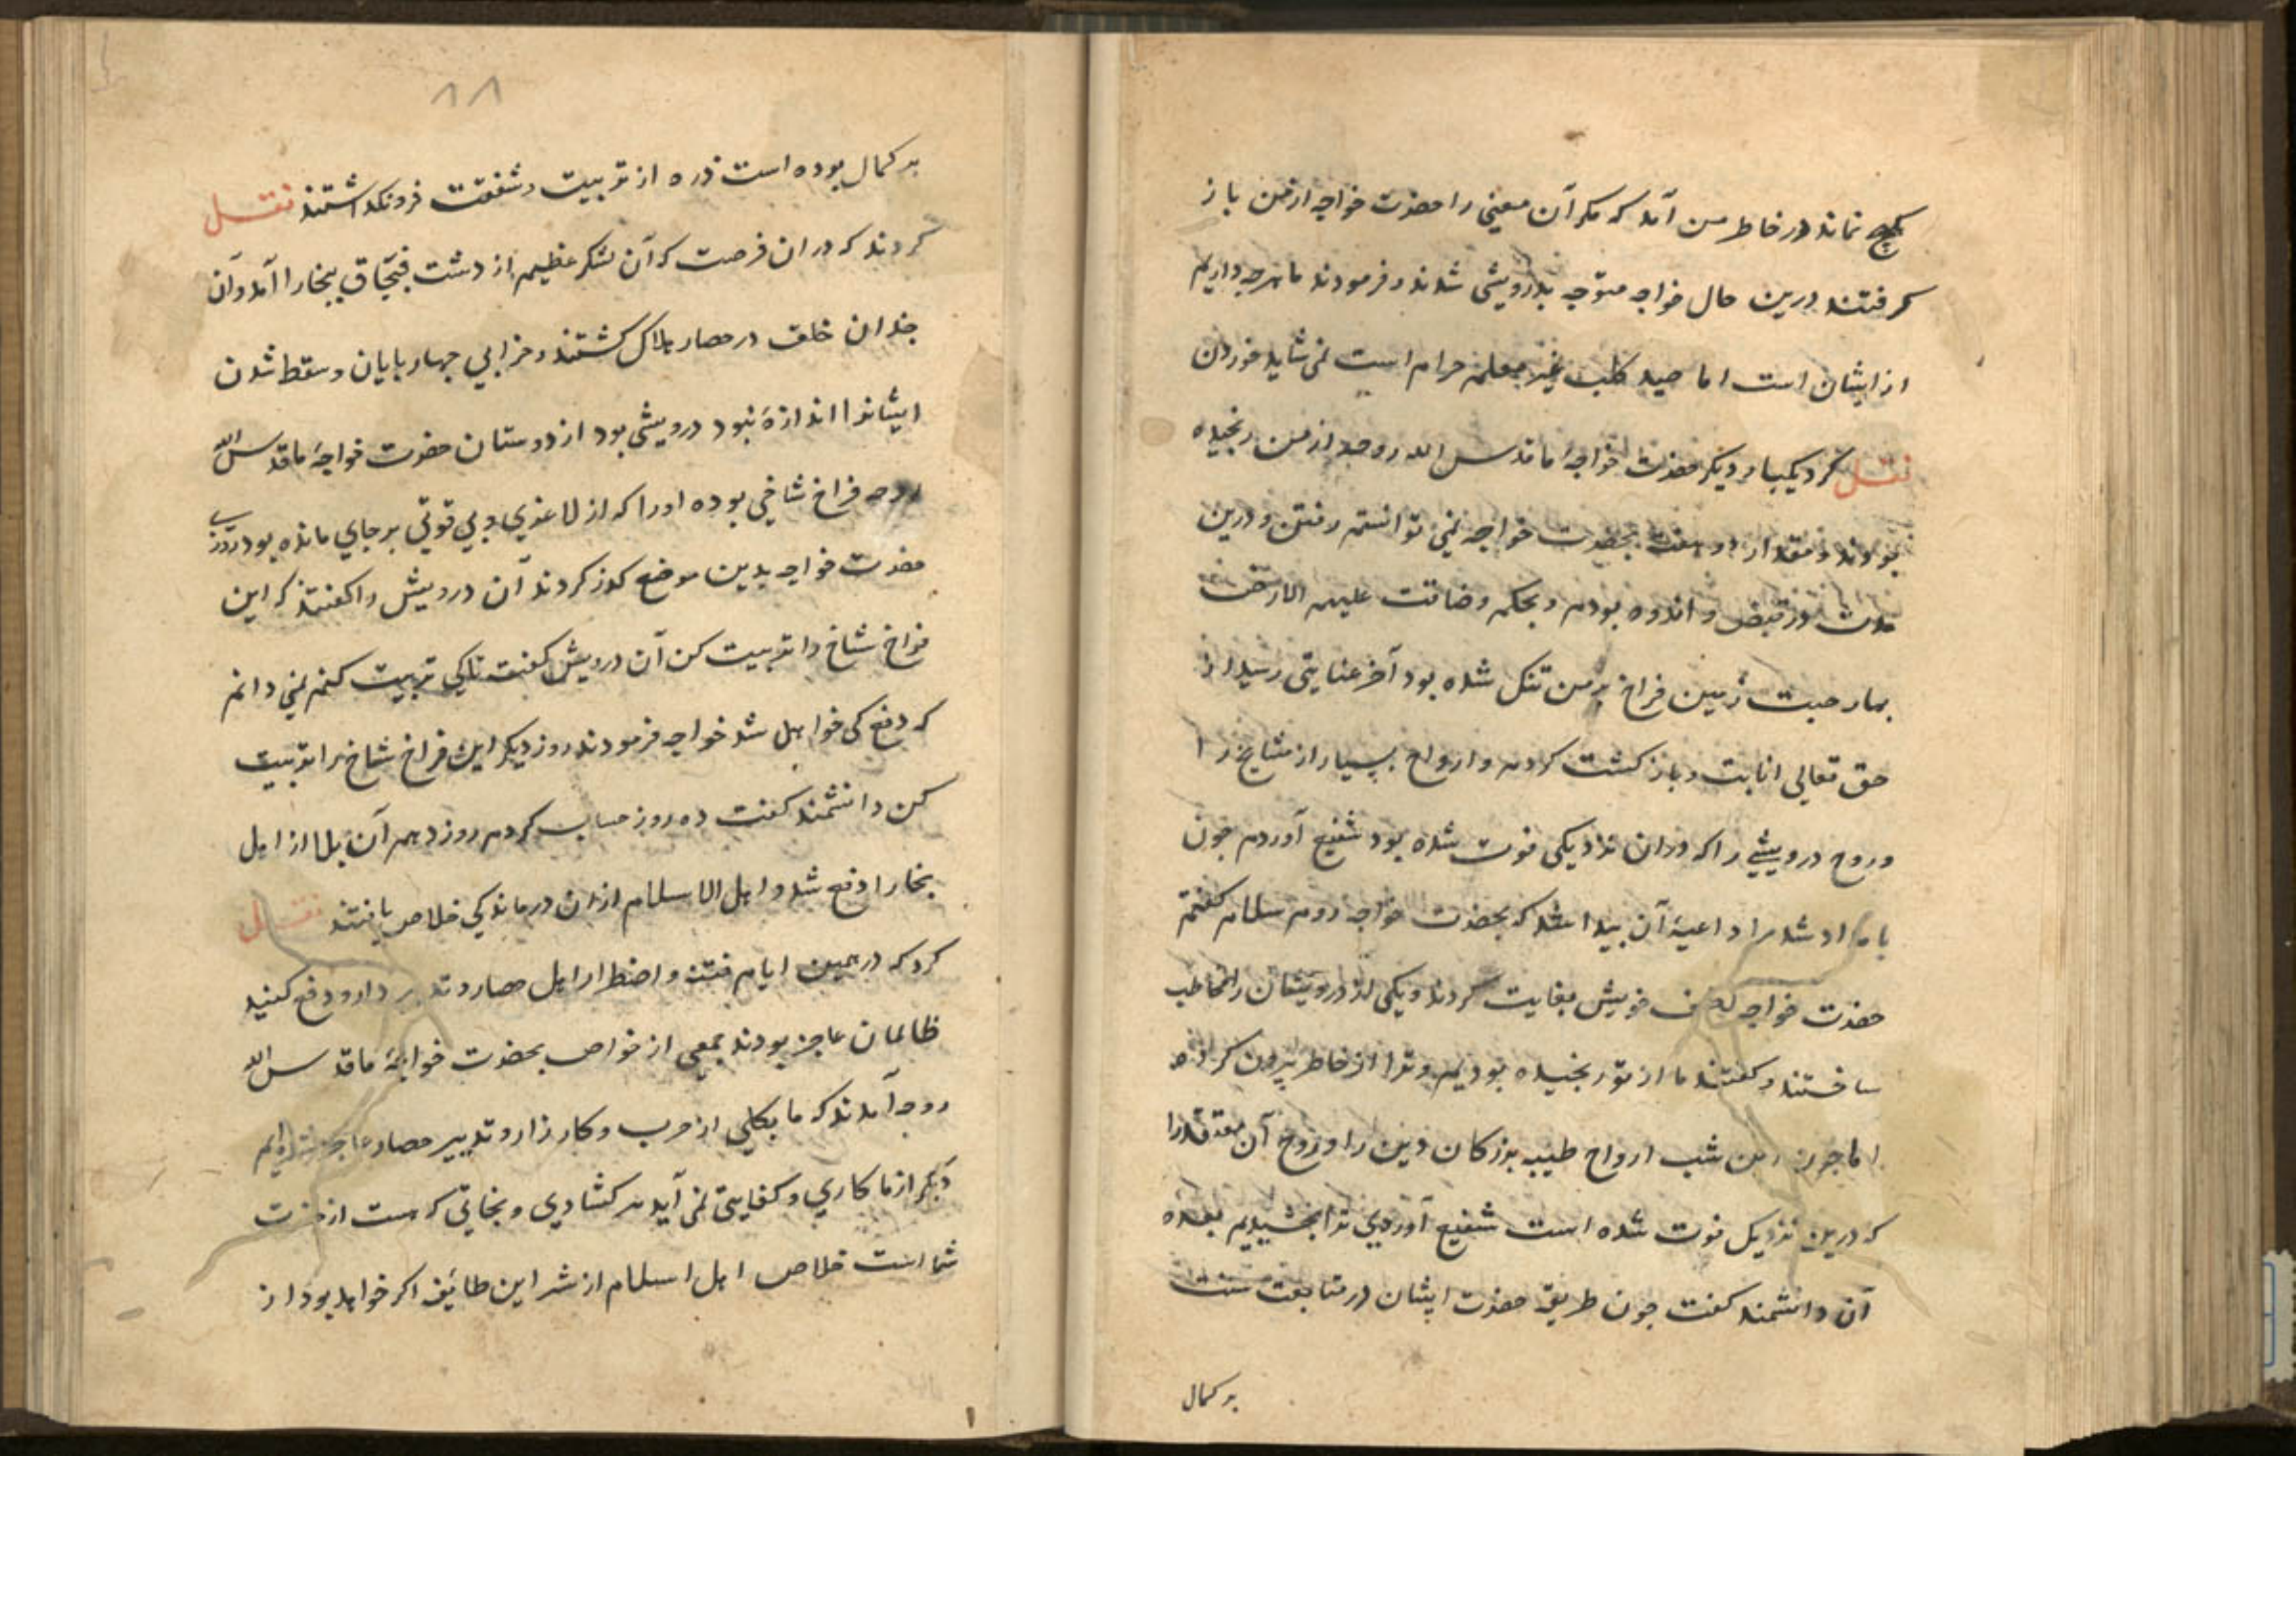 هیچ نماند در خاطر من آمد که مکر آن معنی را حضرت خواجه از من باز
کرفتند درین حال خواجه متوجه بدرویشی شدند و فرمودند ما هرچه داریم
از ایشان است اما صید کلب غیر معلم حرام است نمی شاید خوردن
نقل کرد یکبار دیکر حضرت خواجهٔ ما قدس الله روحه از من رنجیده
بودند و مقدار دو هفته بحضرت خواجه نمی توانستم رفتن و درین
مدت در قبض و اندوه بودم و بحکم وضاقت علیهم الارض
بما رحبت زمین فراخ بر من تنک شده بود آخر عنایتی رسید از
حق تعالی انابت و باز کشت کردم و ارواح بسیار از مشایخ را
و روح درویشی را که دران نزدیکی فوت شده بود شفیع آوردم جون
بامداد شد مرا داعیهٔ آن بیدا شد که بحضرت خواجه روم سلام کفتم
حضرت خواجه لطف خویش بغایت کردند و یکی از درویشان را مخاطب
ساختند و کفتند ما از تو رنجیده بودیم و ترا از خاطر بیرون کرده
اما جون شب ارواح طیبه بزرکان دین را و روح آن معتقد را
که درین نزدیک فوت شده است شفیع آوردی ترا بخشیدیم بعده
آن دانشمند کفت جون طریقه حضرت ایشان در متابعت سنت
بر کمال
۸۸
بر کمال بوده است ذره از تربیت و شفقت فرو نکداشتند نقل
کردند که در ان فرصت که آن لشکر عظیم از دشت قبچاق ببخارا آمد و آن
جندان خلق در حصار هلاک کشتند و خرابی جهار بایان و سقط شدن
ایشانرا اندازهٔ نبود درویشی بود از دوستان حضرت خواجهٔ ما قدس الله
روحه فراخ شاخی بوده او را که از لاغری و بی قوتی بر جای مانده بود روزی
حضرت خواجه بدین موضع کذر کردند آن درویش را کفتند که این
فراخ شاخ را تربیت کن آن درویش کفت تا کی تربیت کنم نمی دانم
که دفع کی خواهد شد خواجه فرمودند روز دیکر این فراخ شاخ را تربیت
کن دانشمند کفت ده روز حساب کردم روز دهم آن بلا از اهل
بخارا دفع شد و اهل الاسلام ازان درماندکی خلاص یافتند نقل
کرد که در همین ایام فتنه و اضطرار اهل حصار و تدبیر دارو دفع کنید
ظالمان عاجز بودند جمعی از خواص بحضرت خواجهٔ ما قدس الله
روحه آمدند که ما بکلی از حرب و کارزار و تدبیر حصار عاجز شده ایم
دیکر از ما کاری و کفایتی نمی آید هر کشادی و نجاتی که هست از حضرت
شما است خلاص اهل اسلام از شر این طائفه اکر خواهد بود از